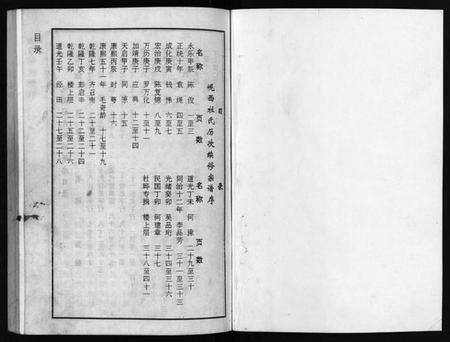 目录
岘西杜氏历次续修宗谱序
名称 页数
永乐甲辰 陈 一至三
正统十年 袁 四至五
成化庚寅 钱 六至七
宏治庚戌 陈复 八至九
万历庚子 罗万化 十至十一
加靖庚子 应典 十二至十四
天启甲子 十五
康熙丙辰 十六
康熙五十一年 毛奇龄 十七至十九
乾隆七年 齐召南 二十至二十一
乾隆丁亥 彭启丰 二十二至二十四
乾隆乙卯 楼上层 二十五至二十六
道光壬午 经 二十七至二十八
名称 页数
道光丁未 何 二十九至三十
同治十二年 李品芳 三十一至三十三
光绪癸卯 吴品珩 三十四至三十六
民国丁卯 何建章 三十七
杜晔专辑 楼上层 三十八至四十一
目录